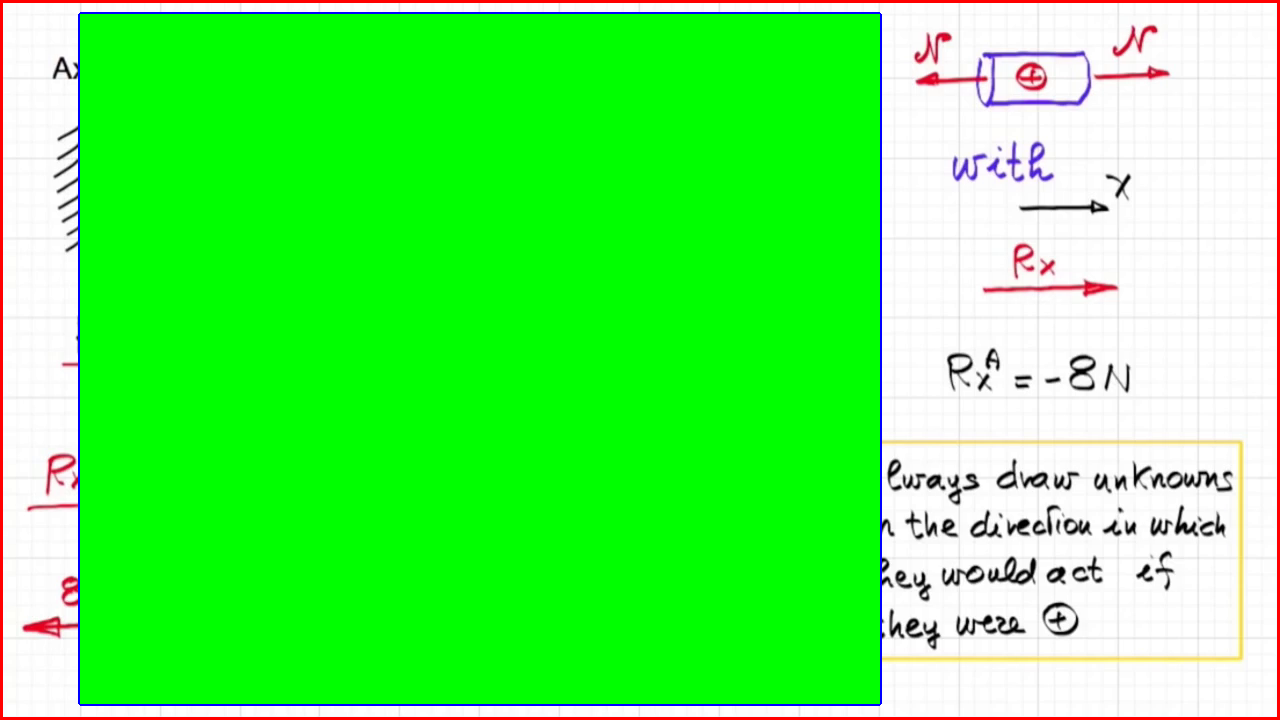 N N
with
x
Rx
RxA = -8N
lways draw unknowns
the direction in which
hey would act if
hey were ⊕
8